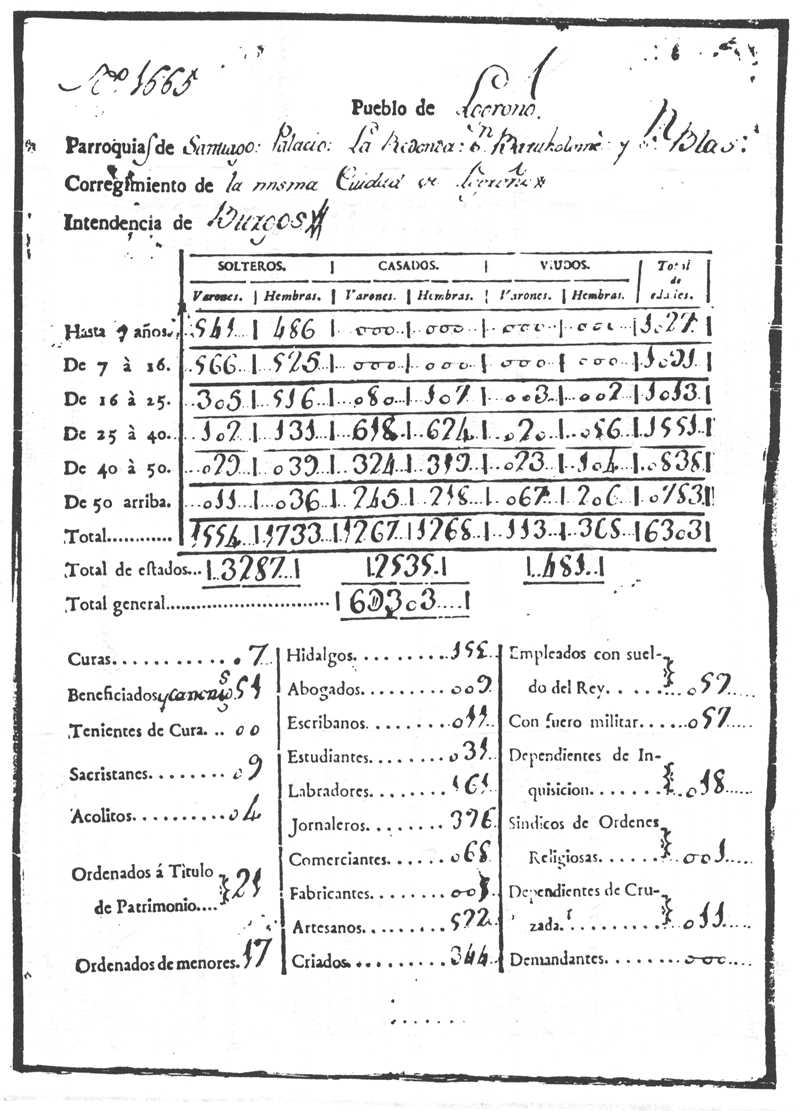 Nº 1665
Pueblo de Logroño.
Parroquias de Santiago: Palacio: La Redonda: Sn. Bartholomè y Sn. Blas:
Corregimiento de la misma Ciudad de Logroño
Intendencia de Burgos
SOLTEROS. CASADOS. VIUDOS. Total
de
edades.
Varones. Hembras. Varones. Hembras. Varones. Hembras.
Hasta 7 años. 541 486 000 000 000 000 1027
De 7 à 16. 566 525 000 000 000 000 1091
De 16 à 25. 305 516 080 107 003 002 1013
De 25 à 40. 102 131 618 624 020 056 1551
De 40 à 50. 029 039 324 319 023 104 0838
De 50 arriba. 011 036 245 218 067 206 0783
Total............ 1554 1733 1267 1268 113 368 6303
Total de estados... 3287 2535 481
Total general.............................. 6303
Curas............ 7
Beneficiados y canonigos 51
Tenientes de Cura... 00
Sacristanes........ 09
Acolitos.......... 04
Ordenados á Titulo
de Patrimonio.... 21
Ordenados de menores. 17
Hidalgos.........
Abogados........ 009
Escribanos........ 011
Estudiantes........ 031
Labradores........ 161
Jornaleros........ 376
Comerciantes...... 068
Fabricantes.......
Artesanos.........
Criados.......... 344
Empleados con suel-
do del Rey......
Con fuero militar..... 057
Dependientes de In-
quisicion........ 018
Sindicos de Ordenes
Religiosas....... 001
Dependientes de Cru-
zada.......... 011
Demandantes....... 000